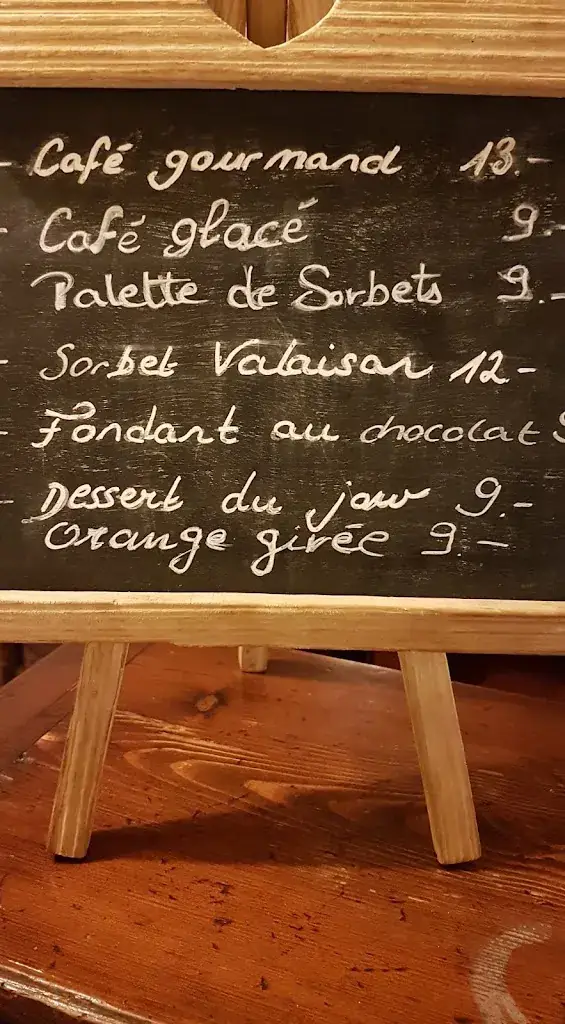 - Café gourmand 13.-
- Café glacé 9.-
Palette de Sorbets 9.-
- Sorbet Valaisan 12-
- Fondant au chocolat
- Dessert du jour 9.-
Orange givrée 9.-